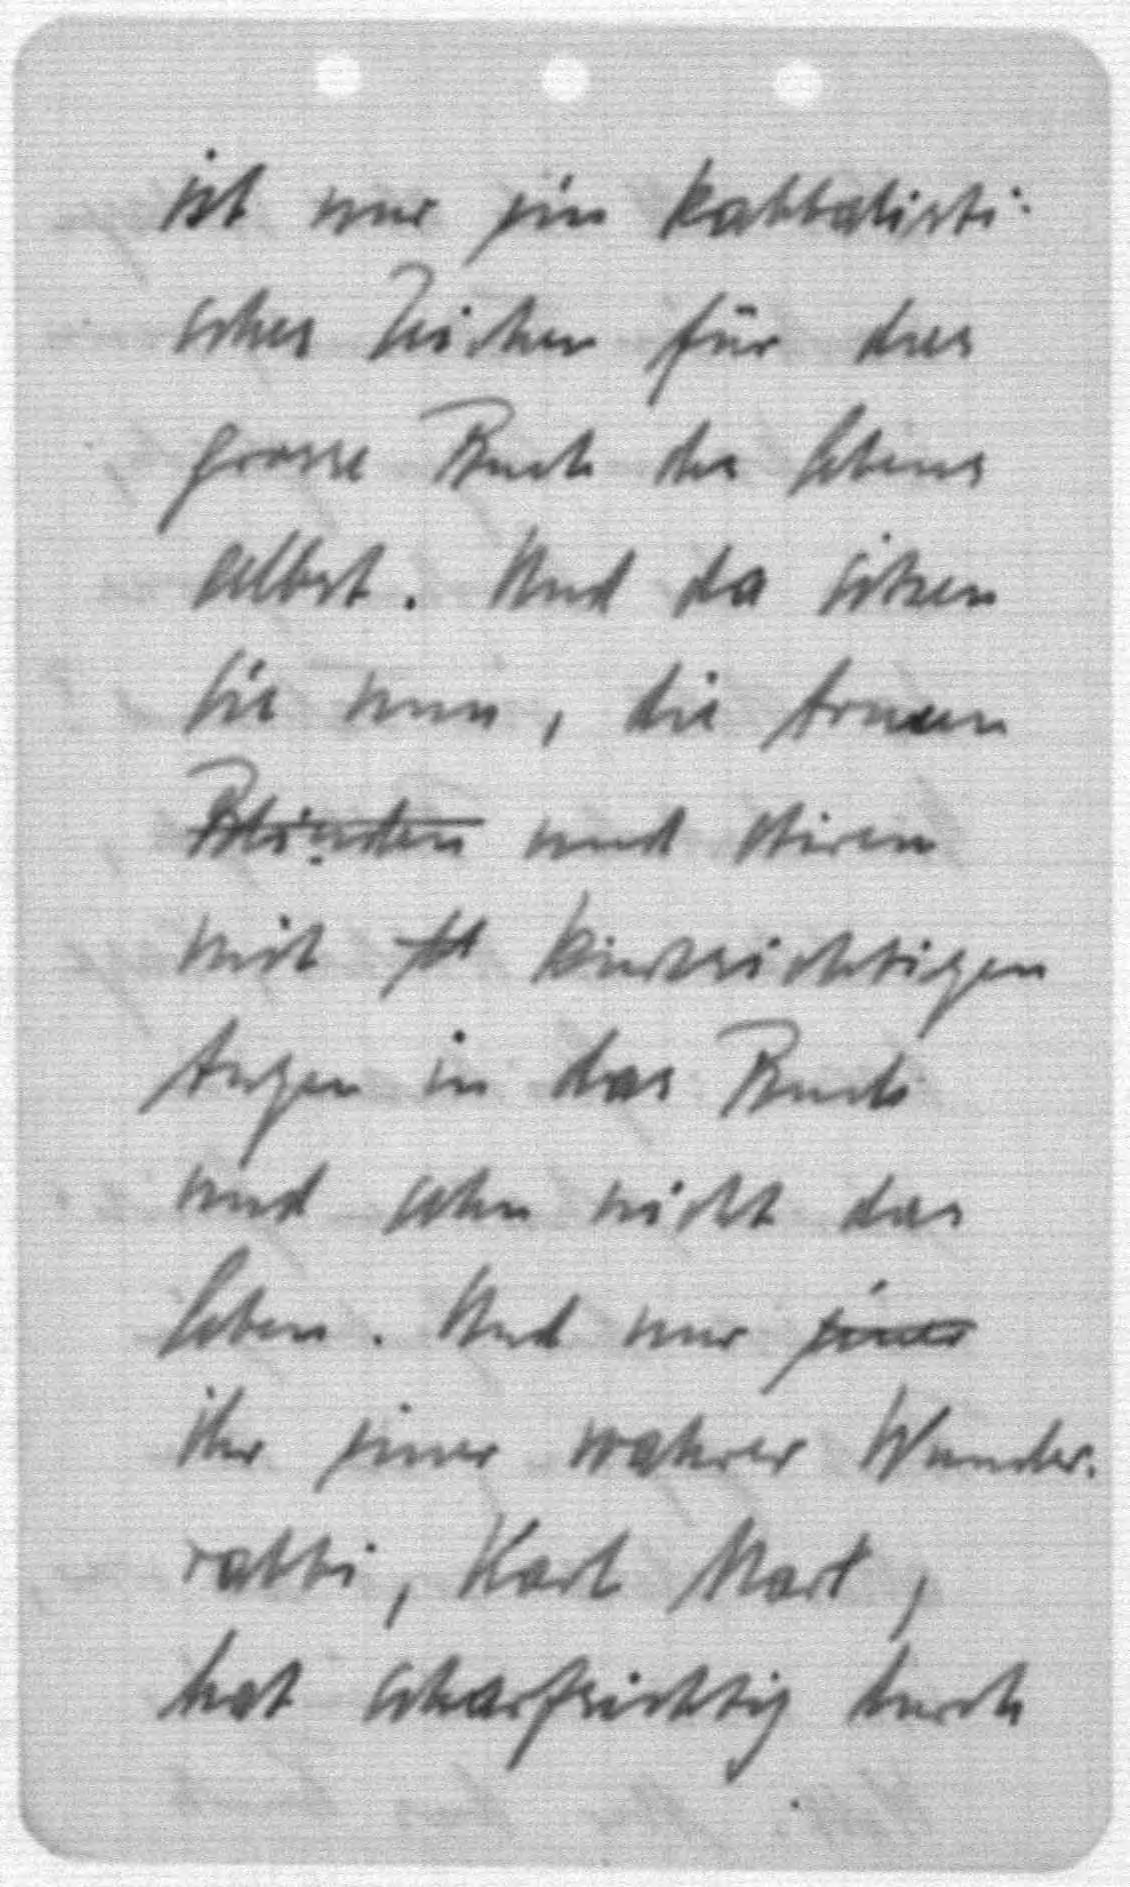 ist nur ein kabbalisti-
sches Zeichen für das
grosse Buch des Lebens
selbst. Und da sitzen
sie nun, die Armen
Blinden und stieren
mit kurzsichtigen
Augen in das Buch
und sehn nicht das
Leben. Und nur einer
ihr einer wahrer Wunder-
rabbi, Karl Marx,
hat scharfsichtig durch